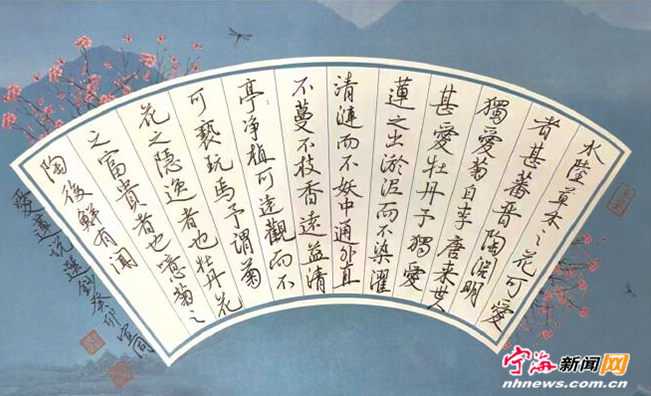 水陸草木之花可愛
者甚蕃晋陶渊明
獨愛菊自李唐来世人
甚愛牡丹予獨愛
蓮之出淤泥而不染濯
清漣而不妖中通外直
不蔓不枝香遠益清
亭净植可遠觀而不
可褻玩焉予謂菊
花之隐逸者也牡丹花
之富貴者也噫菊之
陶後鮮有聞
愛蓮説選鈔癸卯
宁海新闻网
nhnews.com.cn